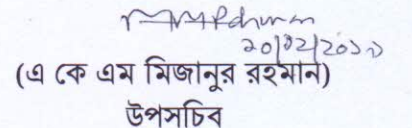 ২০/০২/২০১১
(এ কে এম মিজানুর রহমান)
উপসচিব